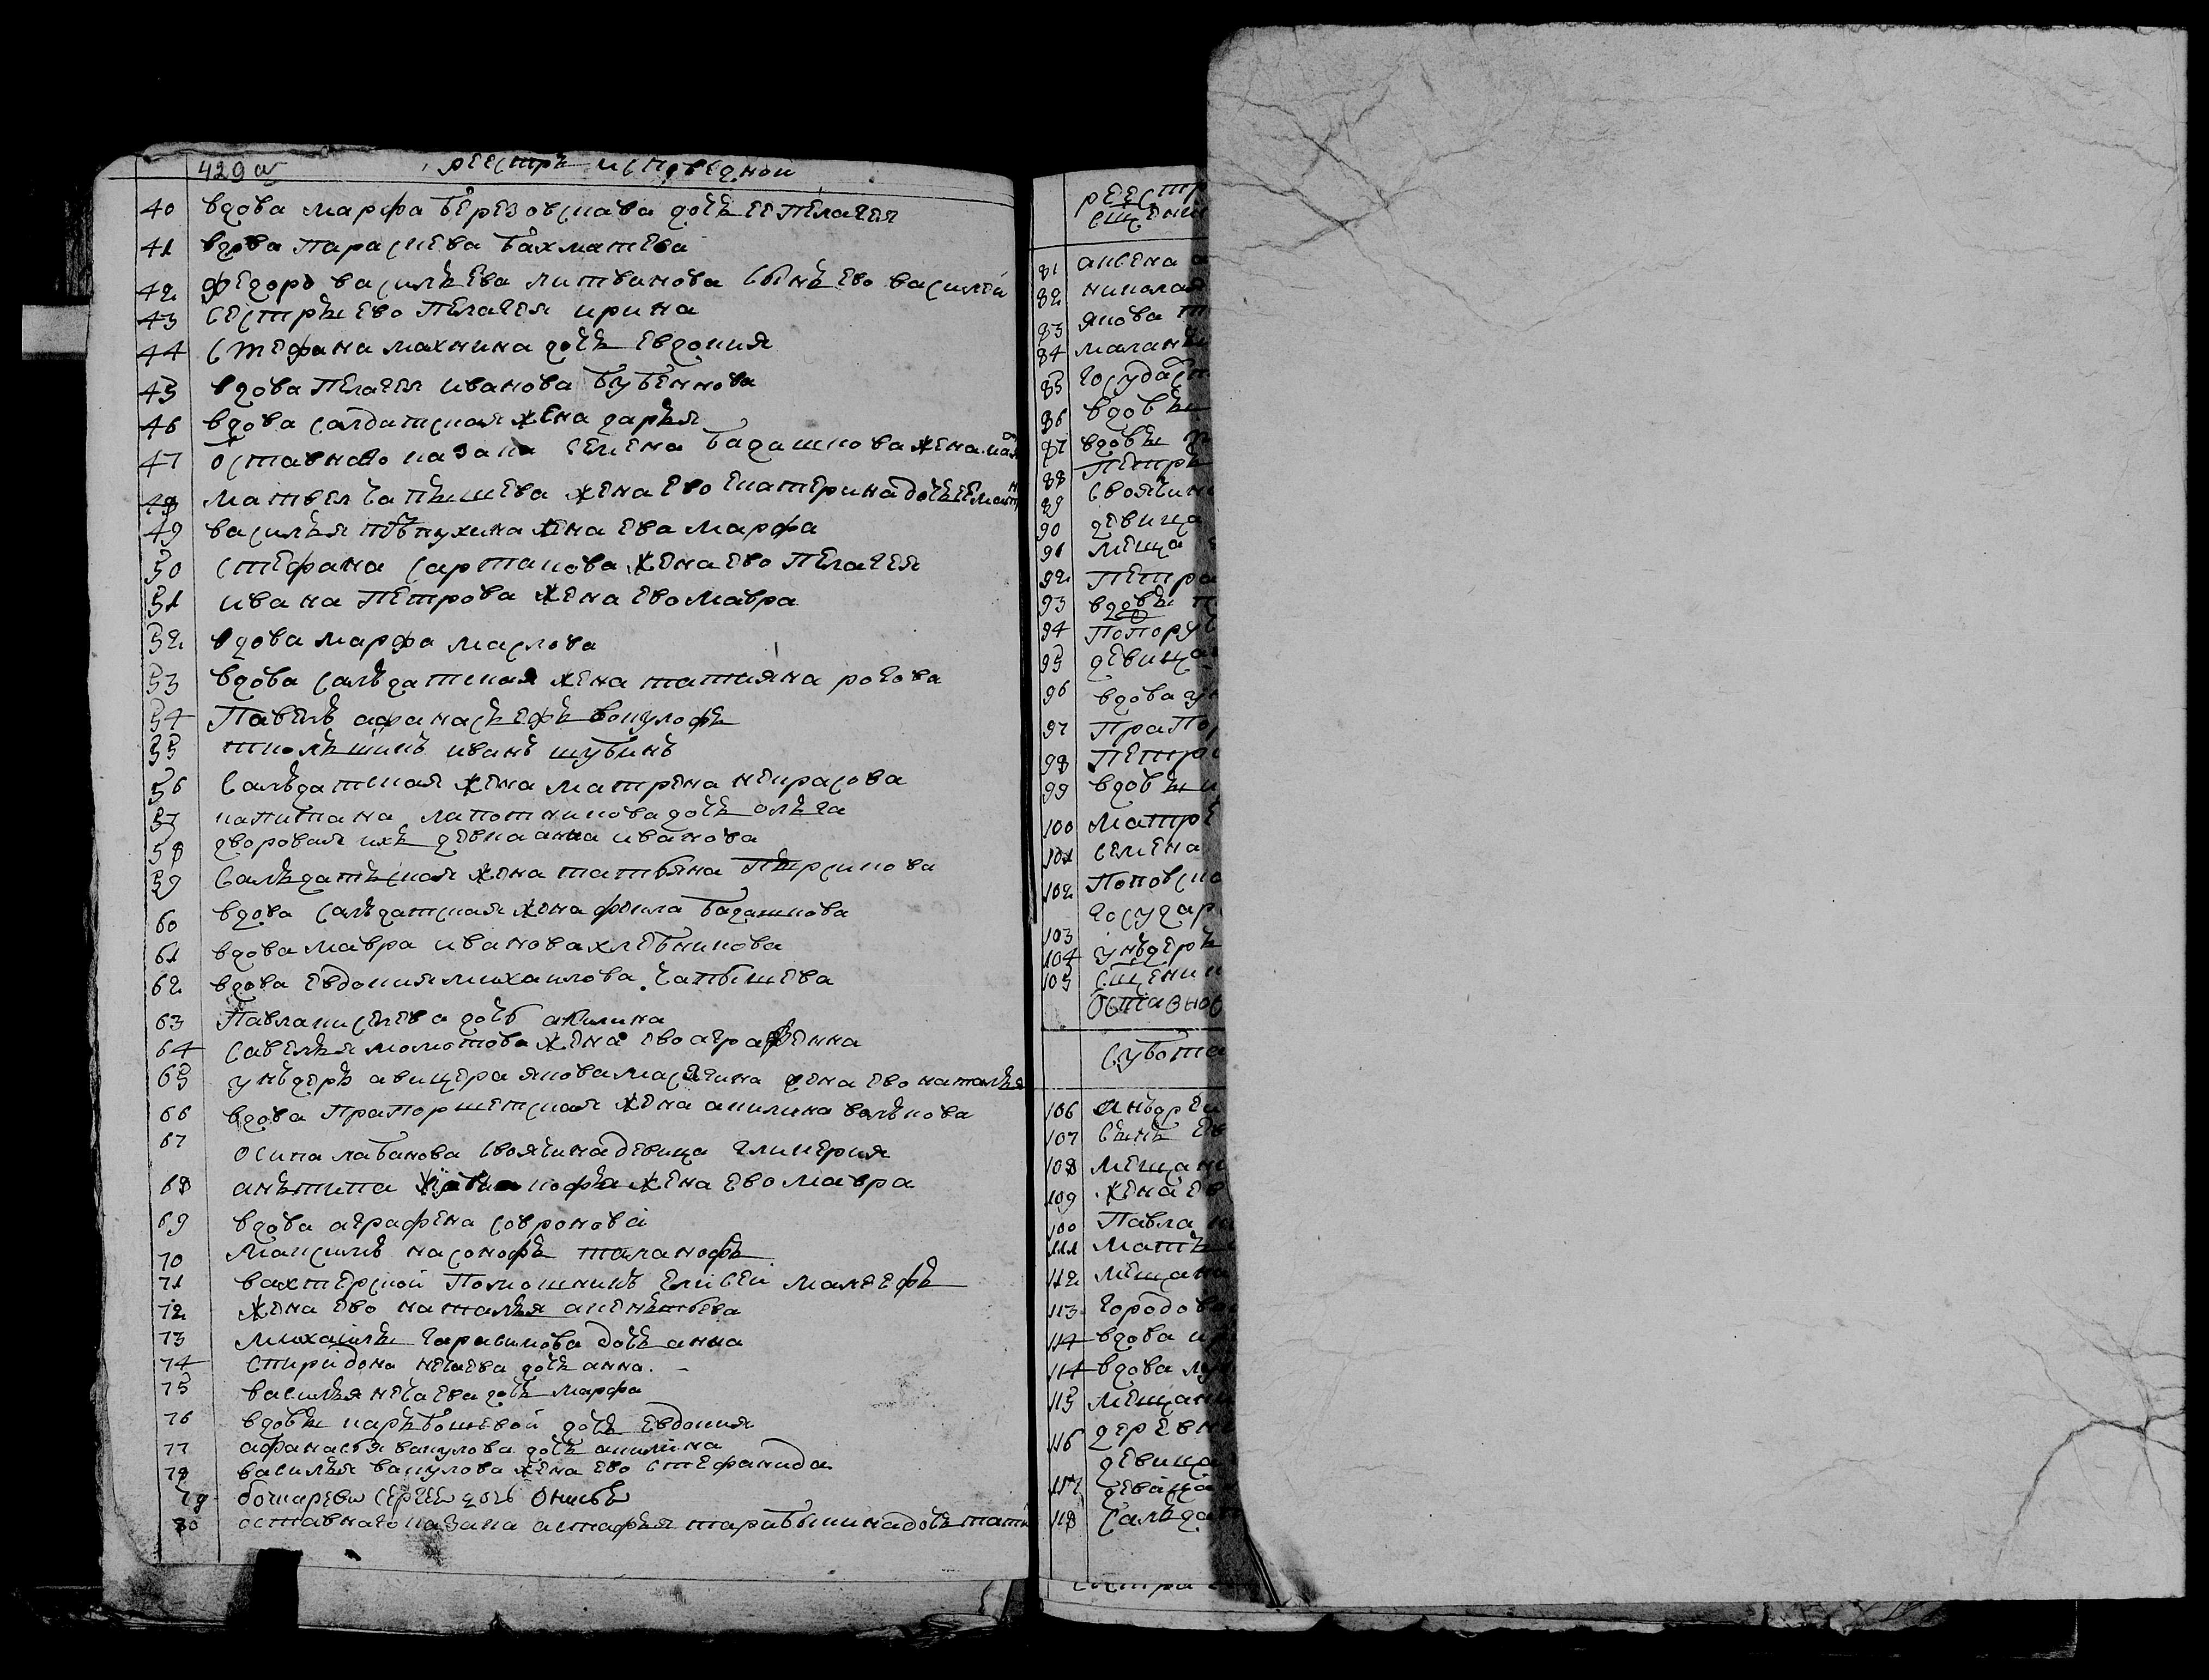 429 об
реестръ исповедной
40 вдова марфа березовскава дочь ее пелагея
41 вдова параскева бахматева
42 федоръ васильева литвинова сынъ ево василей
43 сестры ево пелагея ирина
44 стефана махнина дочь евдокия
45 вдова пелагея иванова бубеннова
46 вдова салдатская жена дарья
47 оставново казака семена бадашкова жена
48 матвея чапышева жена ево екатерина дочь ее
49 василья жена ева марфа
50 стефана сартакова жена ево пелагея
51 ивана петрова жена ево мавра
52 вдова марфа маслова
53 вдова салъдатская жена татияна рогова
54 павелъ афанасьефъ вокулофъ
55 школьникъ иванъ шубинъ
56 салъдатская жена матрена некрасова
57 капитана лапотникова дочь ольга
58 дворовая ихъ девка анна иванова
59 сальдатьская жена татьяна
60 вдова салъдатская жена фекла бадашкова
61 вдова мавра иванова хлебникова
62 вдова евдокия михаилова чапышева
63 павла киселева дочь акилина
64 савелья молотова жена ево аграфенна
65 унъдеръ авицера якова масягина жена ево наталья
66 вдова прапоршетская жена акилина валькова
67 осипа лабанова своячина девица гликерия
68 анътипа жена ево мавра
69 вдова аграфена совронова
70 максимъ насонофъ талановъ
71 вахтерской помошникъ елисеи малеефъ
72 жена ево наталья
73 михаилы гарасимова дочь анна
74 спиридона нечаева дочь анна
75 василья нечаева дочь марфа
76 вдовы карьбышевой дочь евдокия
77 афанасья вакулова дочь акилина
78 василья вакулова жена ево стефанида
79 сергеи
80 оставнаго казака астафья тарабыкина дочь
реестр
сщени
81 аксена
82 николая
83 якова
84 малань
85 государст
86 вдовы
87 вдовы
88 петръ
89 своячин
90 девица
91 меща
92 петра
93 вдовы
94 попоруч
95 девица
96 вдова
97 прапор
98 петра
99 вдовы
100 матре
101 семена
102 поповска
государ
103
104 унъдеръ
105 сщеник
оставнов
субота
106 анъдреи
107 сынъ ев
108 мещани
109 жена ев
100 павла
111 мать
112 мещани
113 городов
114 вдова
114 вдова
115 мещани
116 деревн
девица
117 девица
118 салъдат